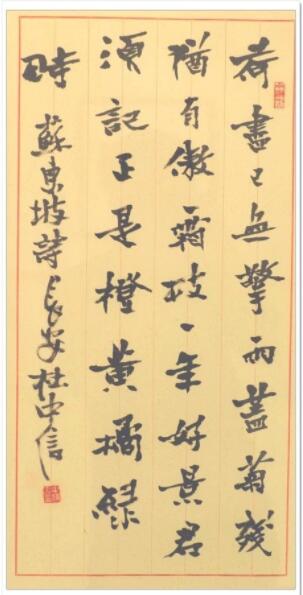 荷盡已無擎雨蓋菊殘
猶有傲霜枝一年好景君
須記正是橙黃橘綠
時 蘇東坡詩長安杜中信